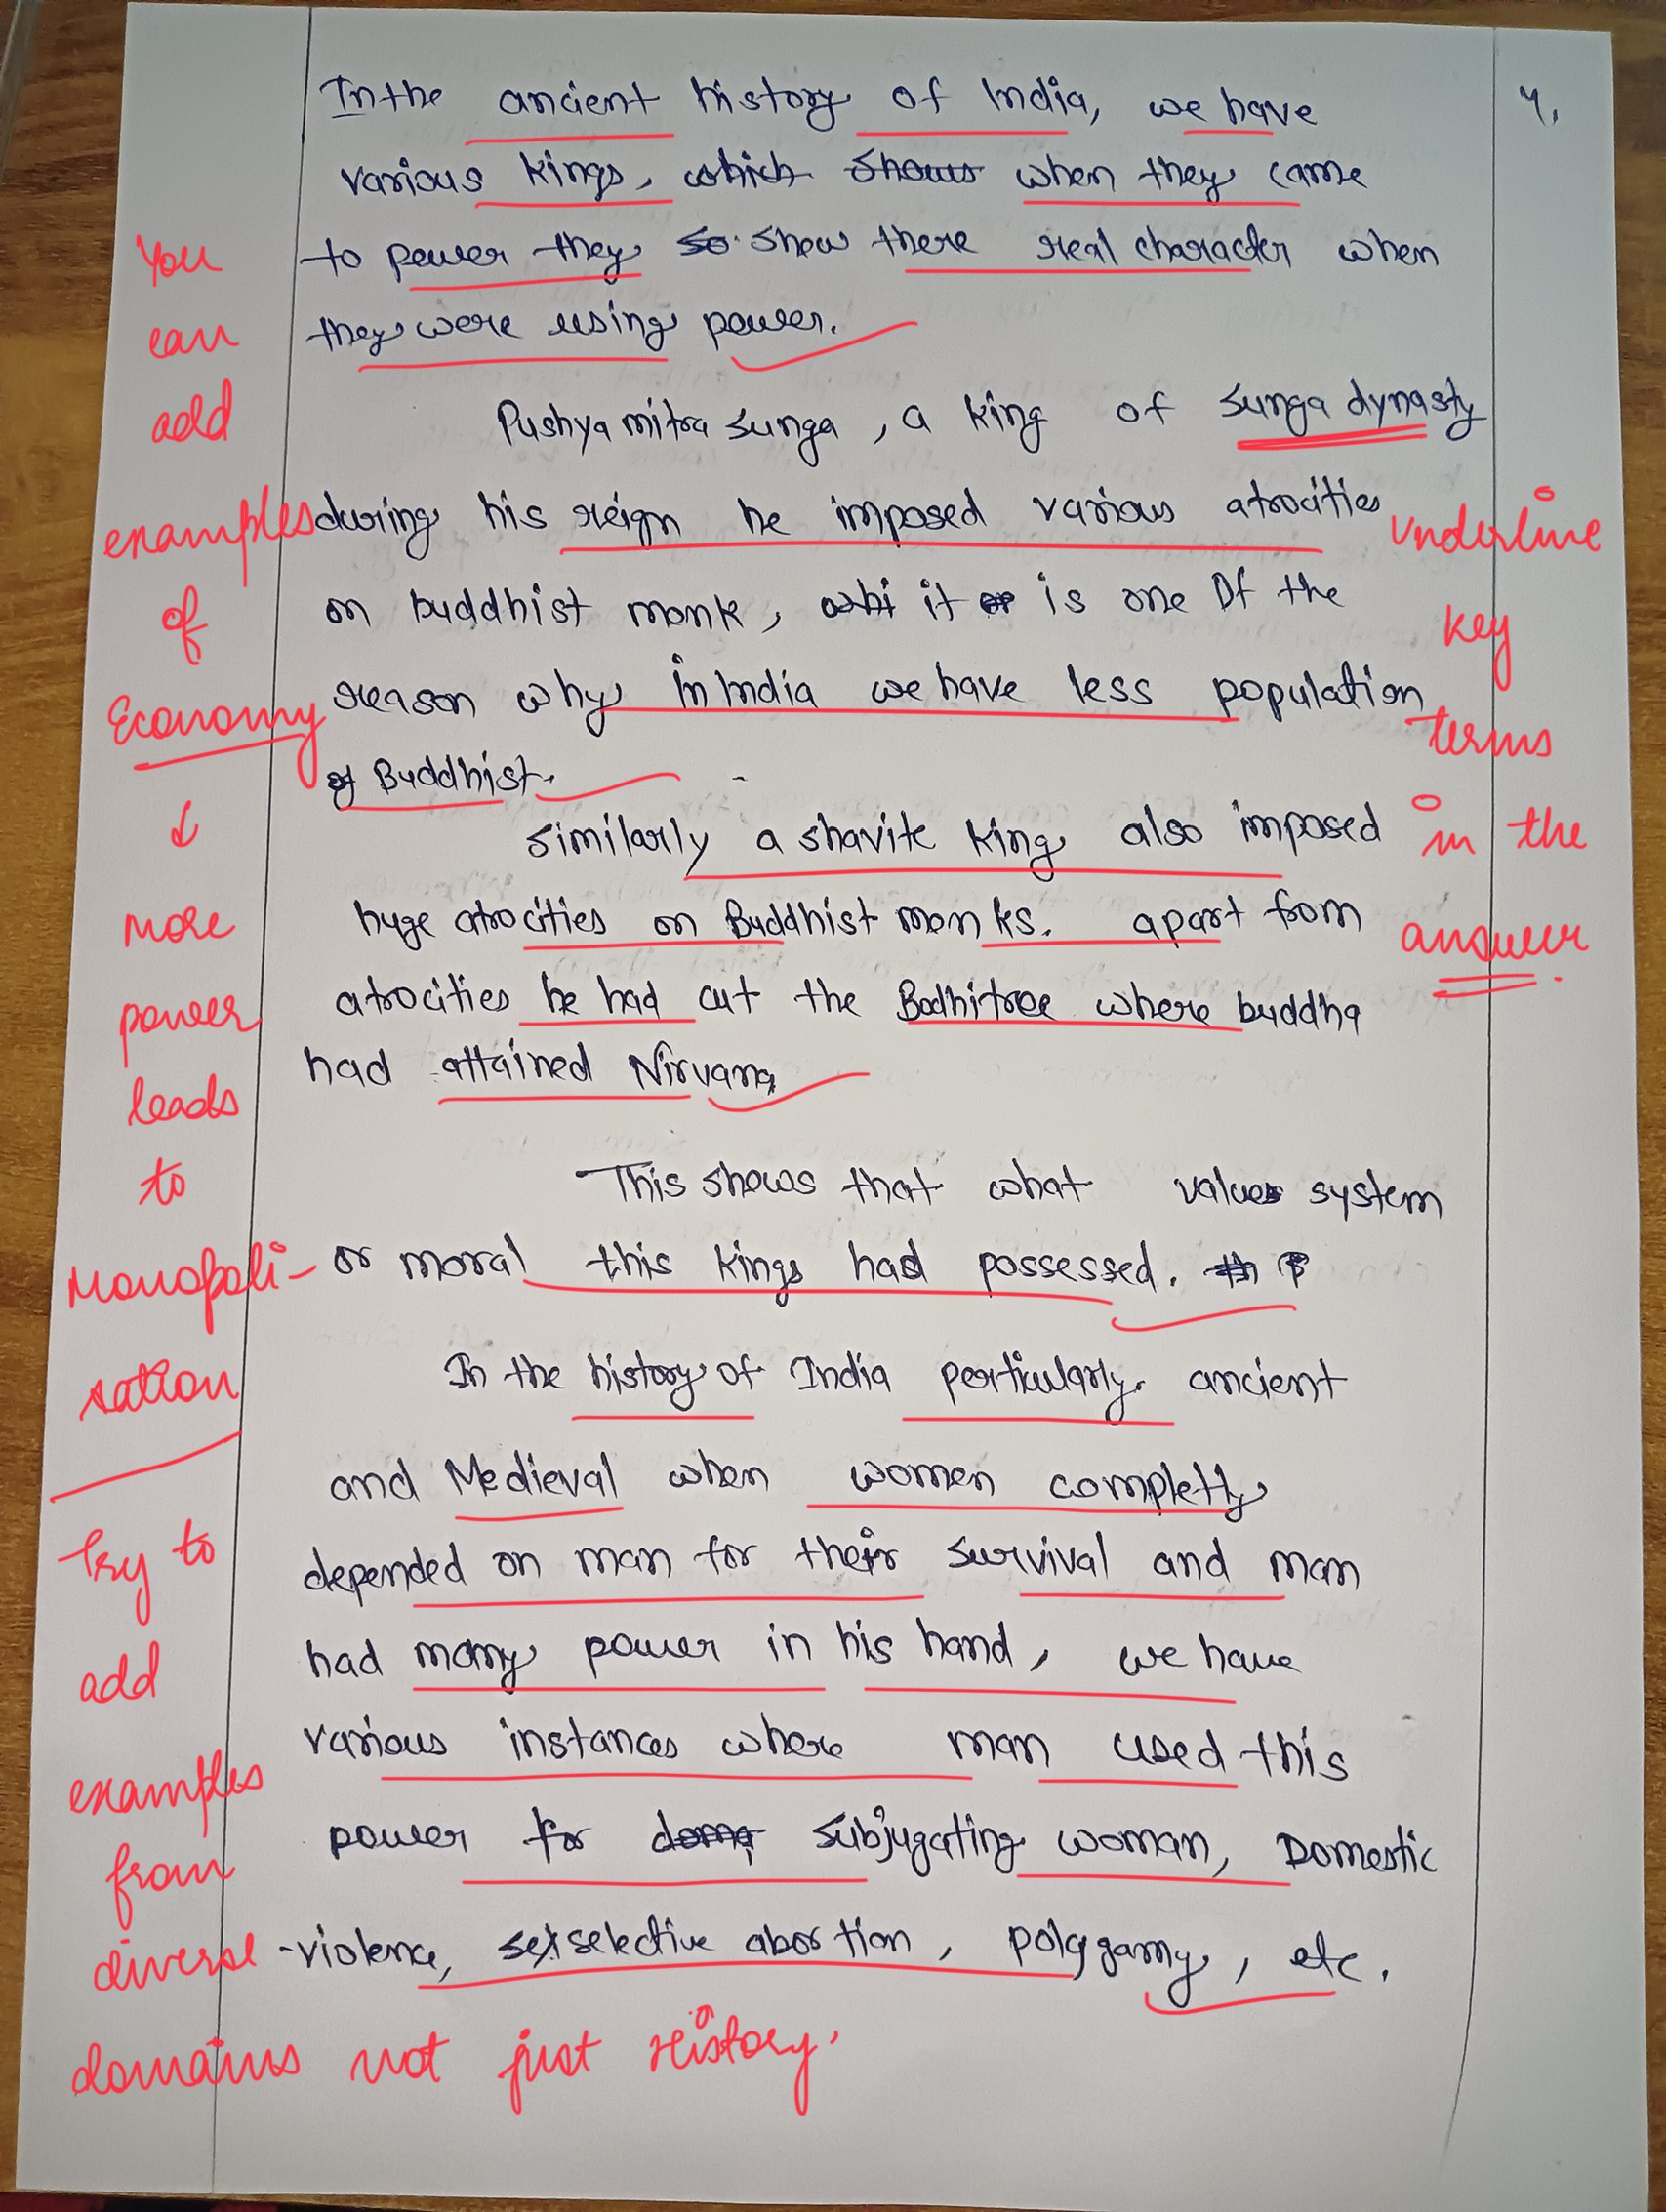 In the ancient history of India, we have
4.
various kings, which shows when they came
to power they so show there real character when
they were using power.
Pushyamitra Sunga, a king of Sunga dynasty
during his reign he imposed various atrocities
on buddhist monk, whi it is one Of the
reason why in India we have less population
of Buddhist.
Similarly a shavite king also imposed
huge atrocities on Buddhist monks. apart from
atrocities he had cut the Bodhitree where buddha
had attained Nirvana
This shows that what values system
or moral this kings had possessed. th P
In the history of India perticularly ancient
and Medieval when women completly
depended on man for their survival and man
had many power in his hand, we have
various instances where man used this
power for doma subjugating woman, Domestic
-violence, sex selective abortion, polygamy, etc.
You
can
add
examples
of
Economy
↓
more
power
leads
to
Monopoli-
sation
Try to
add
examples
from
diverse
domains not just History.
Underline
key
terms
in the
answer